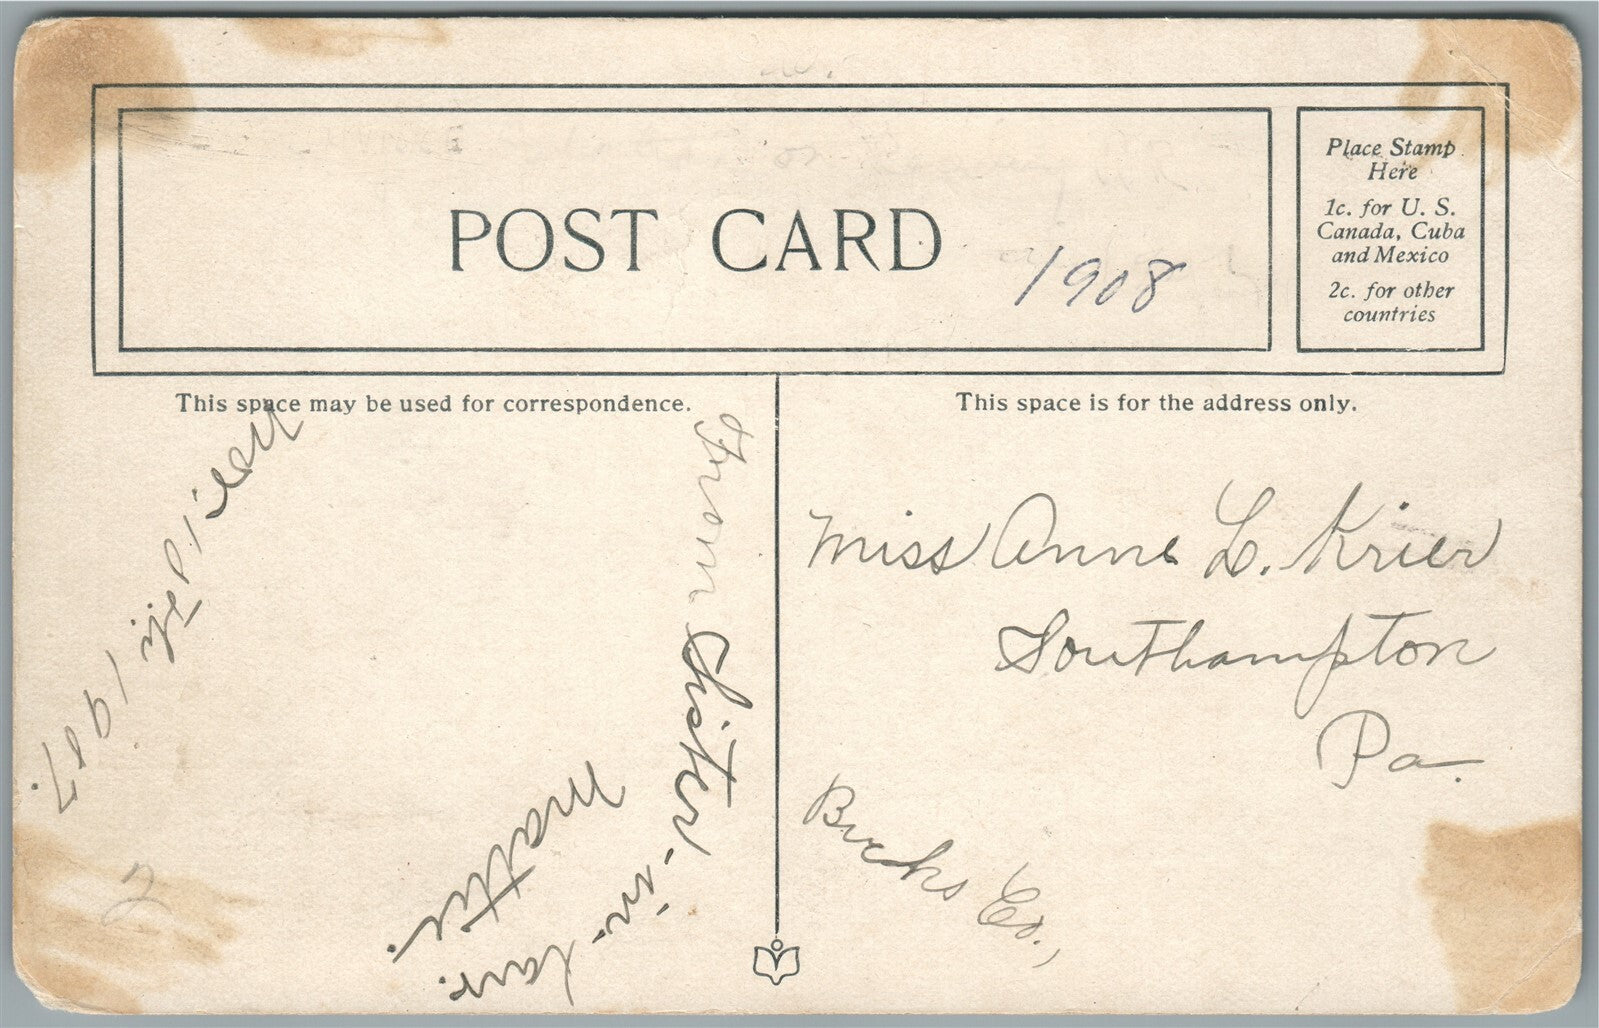 POST CARD
1908
Place Stamp
Here
1c. for U. S.
Canada, Cuba
and Mexico
2c. for other
countries
This space may be used for correspondence.
This space is for the address only.
From Sister-in-law.
Mattie.
1987.
2
Miss Anne L. Krier
Southampton
Pa.
Bucks Co.,